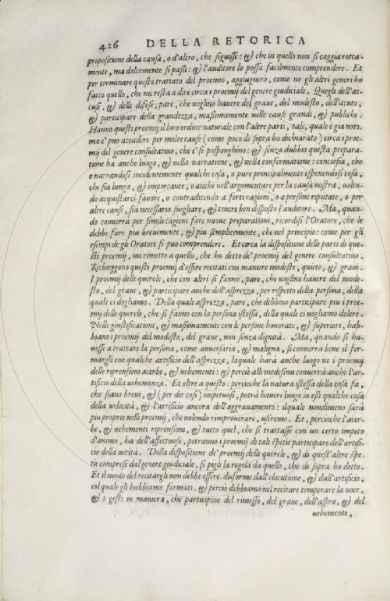 426 DELLA RETORICA
propositione della causa, o d'altro, che seguisse: & che in quello non si caggia rotta-
mente, ma dolcemente si passi: & l'auditore lo possa facilmente comprendere. Et
per terminare questo trattato del proemio, aggiugnerò, come ne gli altri generi ho
fatto quello, che mi resta a dire circa i proemij del genere giudiciale. Quegli dell'ac-
cuse, & delle difese, pare, che voglino havere del grave, del modesto, dell'acuto,
& participare della grandezza, massimamente nelle cause grandi, & publiche.
Hanno questi proemij il loro ordine naturale con l'altre parti, tale, quale è già noto.
ma è pur accader per molte cause (come poco di sopra ho dichiarato) circa i proe-
mij del genere consultativo, che si posponghino: & senza dubbio questa prepara-
tione ha anche luogo, & nella narratione, & nella confermatione: conciosia, che
o narrandosi incidentemente qualche cosa, o pure principalmente esponendosi cosa,
che sia lunga, & importante, o anche nell'argomentare per la causa nostra, volen-
do acquistarci favore, o contradicendo a forti ragioni, o a persone reputate, o per
altre cause, sia necessario vegliare, & tener ben disposto l'auditore. Ma, quan-
do converrà per simili cagioni fare nuove preparationi, ricordisi l'Oratore, che le
debbe fare più brevemente, & più semplicemente, che nel principio: come per gli
esempi de gli Oratori si può comprendere. Et circa la dispositione delle parti di que-
sti proemij, mi rimetto a quello, che ho detto de' proemij del genere consultativo.
Richeggono questi proemij d'essere recitati con maniere modeste, quiete, & gravi.
I proemij delle querele, che con altri si fanno, pare, che voglino havere del mode-
sto, del grave, & participare anche dell'asprezza, per rispetto della persona, della
quale ci dogliamo. Della quale asprezza, pare, che debbino participare più i proe-
mij delle querele, che si fanno con la persona istessa, della quale ci vogliamo dolere.
Nelle giustificationi, & massimamente con le persone honorate, & superiori, hab-
biano i proemij del modesto, del grave, non senza dignità. Ma, quando si ha-
vesse a trattare la persona, come avversaria, & maligna, si converrà bene il for-
margli con qualche artificio dell'asprezza, laquale harà anche luogo ne i proemij
delle reprensioni acerbe, & vehementi: & perciò alli medesimi converrà anche l'ar-
tificio della vehemenza. Et oltre a questo: percioche la natura istessa della cosa fa,
che siano brevi, & (per dir così) impetuosi, potrà havere luogo in essi qualche cosa
della velocità, & l'artificio ancora dell'aggravamento: ilquale nondimeno sarà
più proprio nelli proemij, che volendo rimproverare, useremo. Et, percioche l'acer-
be, & vehementi reprensioni, & tutto quel, che si trattasse con un certo impeto
d'animo, ha dell'affettuoso, potranno i proemij di tali spetie participare dell'artifi-
cio della verità. Della dispositione de' proemij delle querele, & di quest'altre spe-
tie compresi dal genere giudiciale, si pigli la regola da quello, che di sopra ho detto.
Et il modo del recitargli non debbe essere difforme dall'elocutione, & dall'artificio,
col quale gli habbiamo formati. & perciò debbiamo nel recitare temperare la voce,
& i gesti in maniera, che participino del rimesso, del grave, dell'aspro, & del
vehemente,